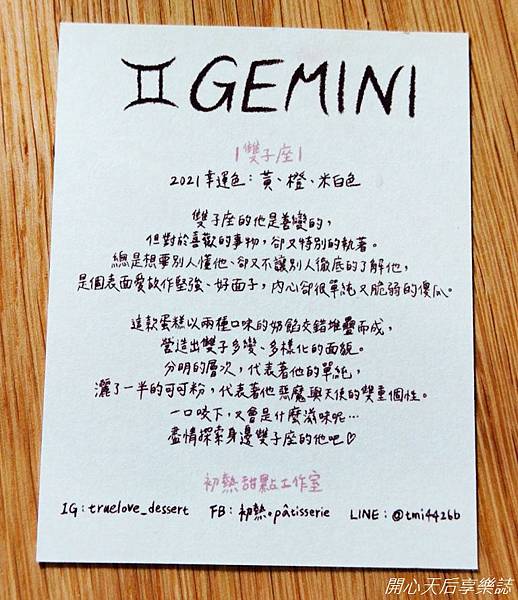 ♊GEMINI
|雙子座|
2021幸運色：黃、橙、米白色
雙子座的他是善變的，
但對於喜歡的事物，卻又特別的執著。
總是想要別人懂他、卻又不讓別人徹底的了解他，
是個表面愛故作堅強、好面子，內心卻很單純又脆弱的傻瓜。
這款蛋糕以兩種口味的奶餡交錯堆疊而成，
營造出雙子多變、多樣化的面貌。
分明的層次，代表著他的單純，
灑了一半的可可粉，代表著他惡魔與天使的雙重個性。
一口咬下，又會是什麼滋味呢…
盡情探索身邊雙子座的他吧♡
初熱甜點工作室
IG：truelove_dessert FB：初熱。pâtisserie LINE：@tmi4426b
開心天后享樂誌